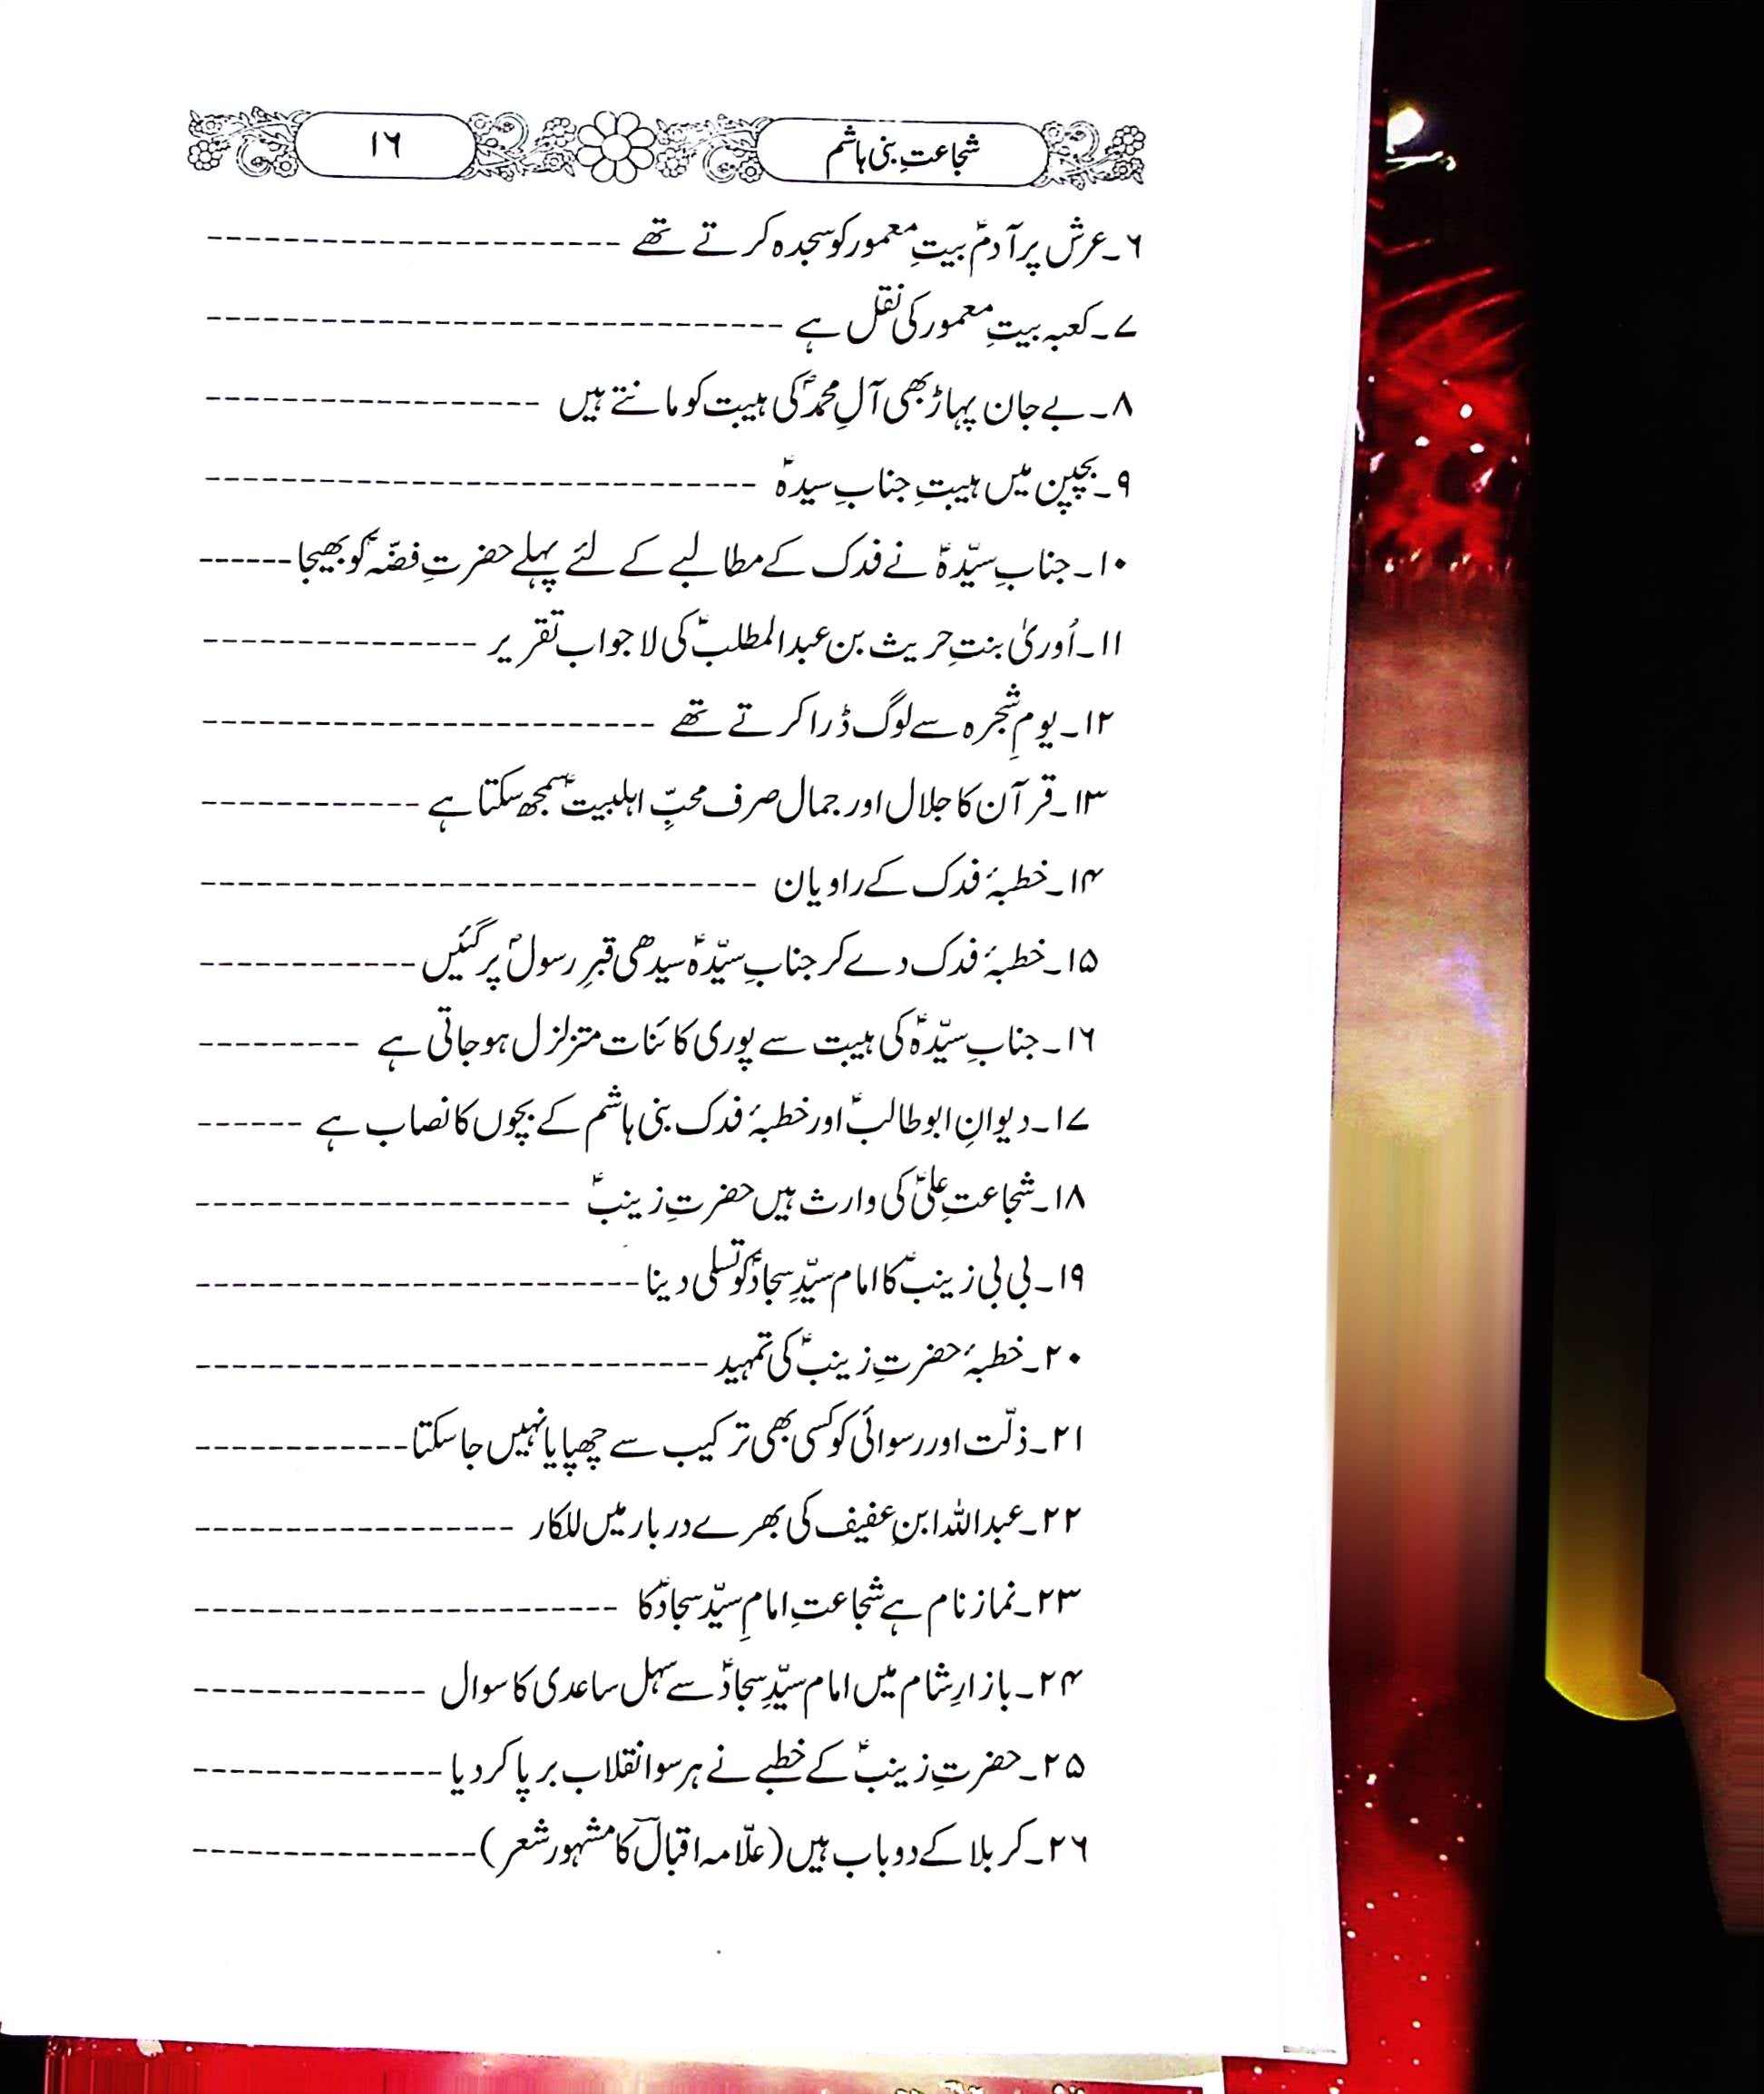 شجاعتِ بنی ہاشم ۱۶
۶۔عرش پر آدمؑ بیتِ معمور کو سجدہ کرتے تھے ----------------------
۷۔کعبہ بیتِ معمور کی نقل ہے ------------------------------
۸۔بے جان پہاڑ بھی آلِ محمدؐ کی ہیبت کو مانتے ہیں ------------------
۹۔بچپن میں ہیبتِ جنابِ سیدہؑ -----------------------------
۱۰۔جنابِ سیّدہؑ نے فدک کے مطالبے کے لئے پہلے حضرتِ فضّہؑ کو بھیجا------
۱۱۔اُوریٰ بنتِ حریث بن عبدالمطلبؑ کی لاجواب تقریر ---------------
۱۲۔یومِ شجرہ سے لوگ ڈرا کرتے تھے ------------------------
۱۳۔قرآن کا جلال اور جمال صرف محبِّ اہلبیتؑ سمجھ سکتا ہے ------------
۱۴۔خطبۂ فدک کے راویان ------------------------------
۱۵۔خطبۂ فدک دے کر جنابِ سیّدہؑ سیدھی قبرِ رسولؐ پر گئیں------------
۱۶۔جنابِ سیّدہؑ کی ہیبت سے پوری کائنات متزلزل ہوجاتی ہے ---------
۱۷۔دیوانِ ابوطالبؑ اور خطبۂ فدک بنی ہاشم کے بچوں کا نصاب ہے ------
۱۸۔شجاعتِ علیؑ کی وارث ہیں حضرتِ زینبؑ --------------------
۱۹۔بی بی زینبؑ کا امام سیّدِ سجادؑ کو تسلی دینا------------------------
۲۰۔خطبۂ حضرتِ زینبؑ کی تمہید ---------------------------
۲۱۔ذلّت اور رسوائی کو کسی بھی ترکیب سے چھپایا نہیں جا سکتا------------
۲۲۔عبداللہ ابنِ عفیف کی بھرے دربار میں للکار -----------------
۲۳۔نماز نام ہے شجاعتِ امامِ سیّد سجادؑ کا -----------------------
۲۴۔بازارِ شام میں امام سیّدِ سجادؑ سے سہل ساعدی کا سوال -------------
۲۵۔حضرتِ زینبؑ کے خطبے نے ہر سو انقلاب برپا کردیا --------------
۲۶۔کربلا کے دو باب ہیں (علّامہ اقبالؔ کا مشہور شعر)----------------